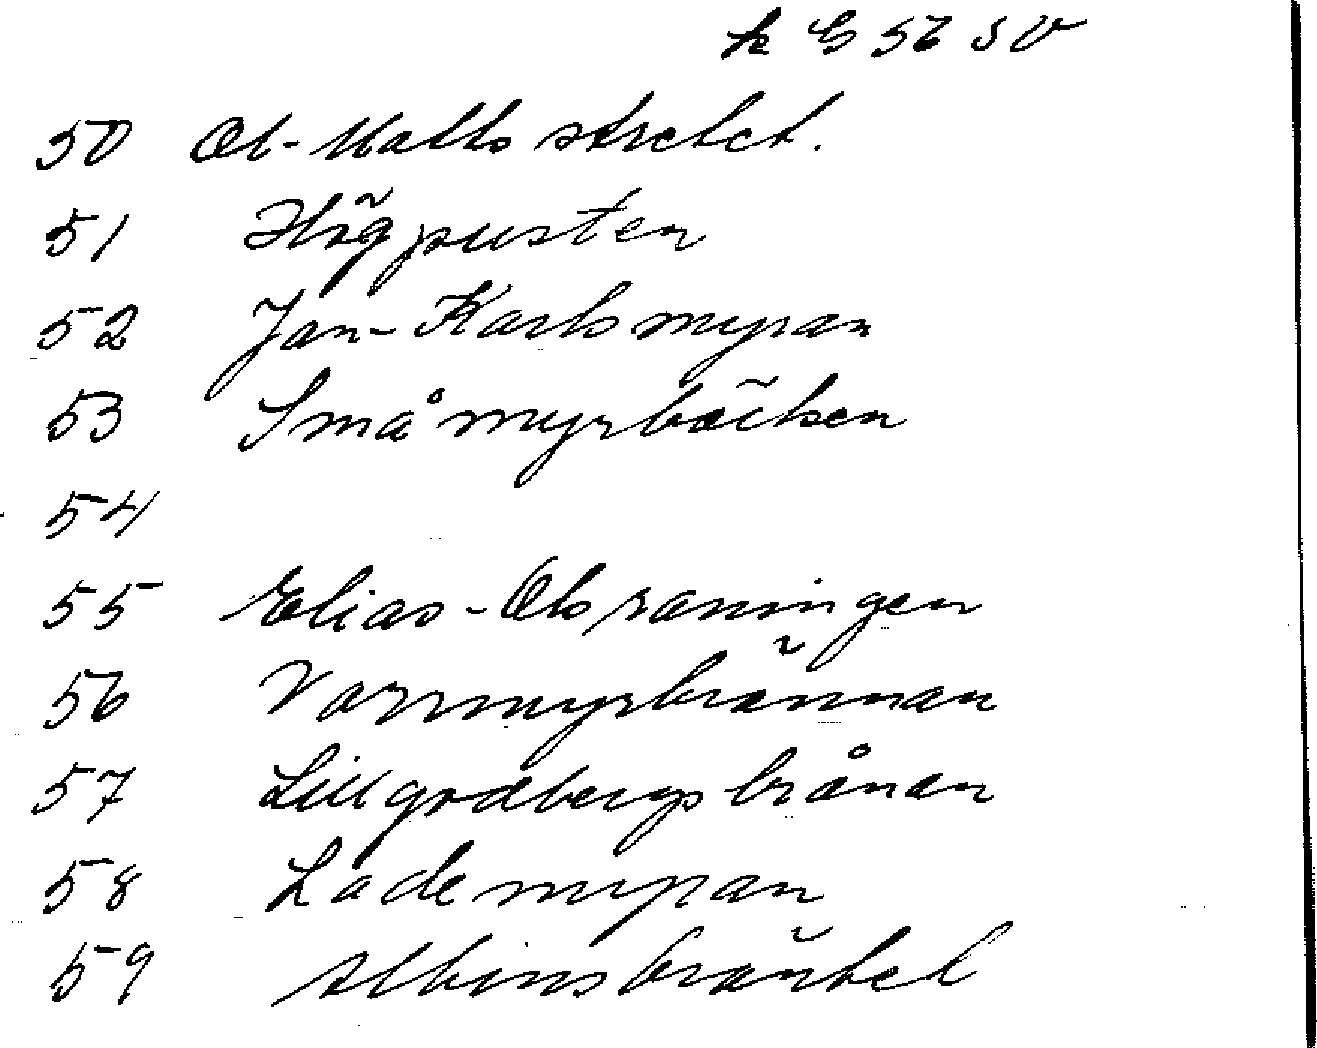 k G 56 SV
50 Ol-Matts stretet.
51 Högpusten
52 Jan-Karlsmyran
53 Småmyrbäcken
54
55 Elias-Olsraningen
56 Varrmyrbrännan
57 Lillgrdbergsbrånan
58 Lademyran
59 Albinsbräckel